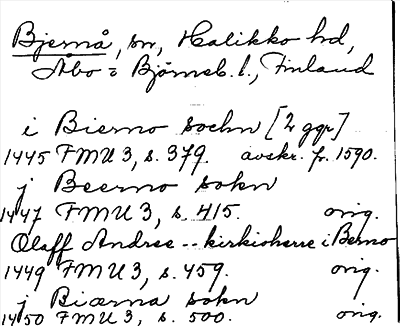 Bjernå, sn, Halikko hd,
Åbo = Björneb. l., Finland
i Bierno sochn [2 ggr]
1445 FMU 3, s. 379. avskr. fr. 1590.
j Beerno sokn
1447 FMU 3, s. 415. orig.
Olaff Andree -- kirkioherre i Berno
1449 FMU 3, s. 459. orig.
j Biærna sokn
1450 FMU 3, s. 500. orig.